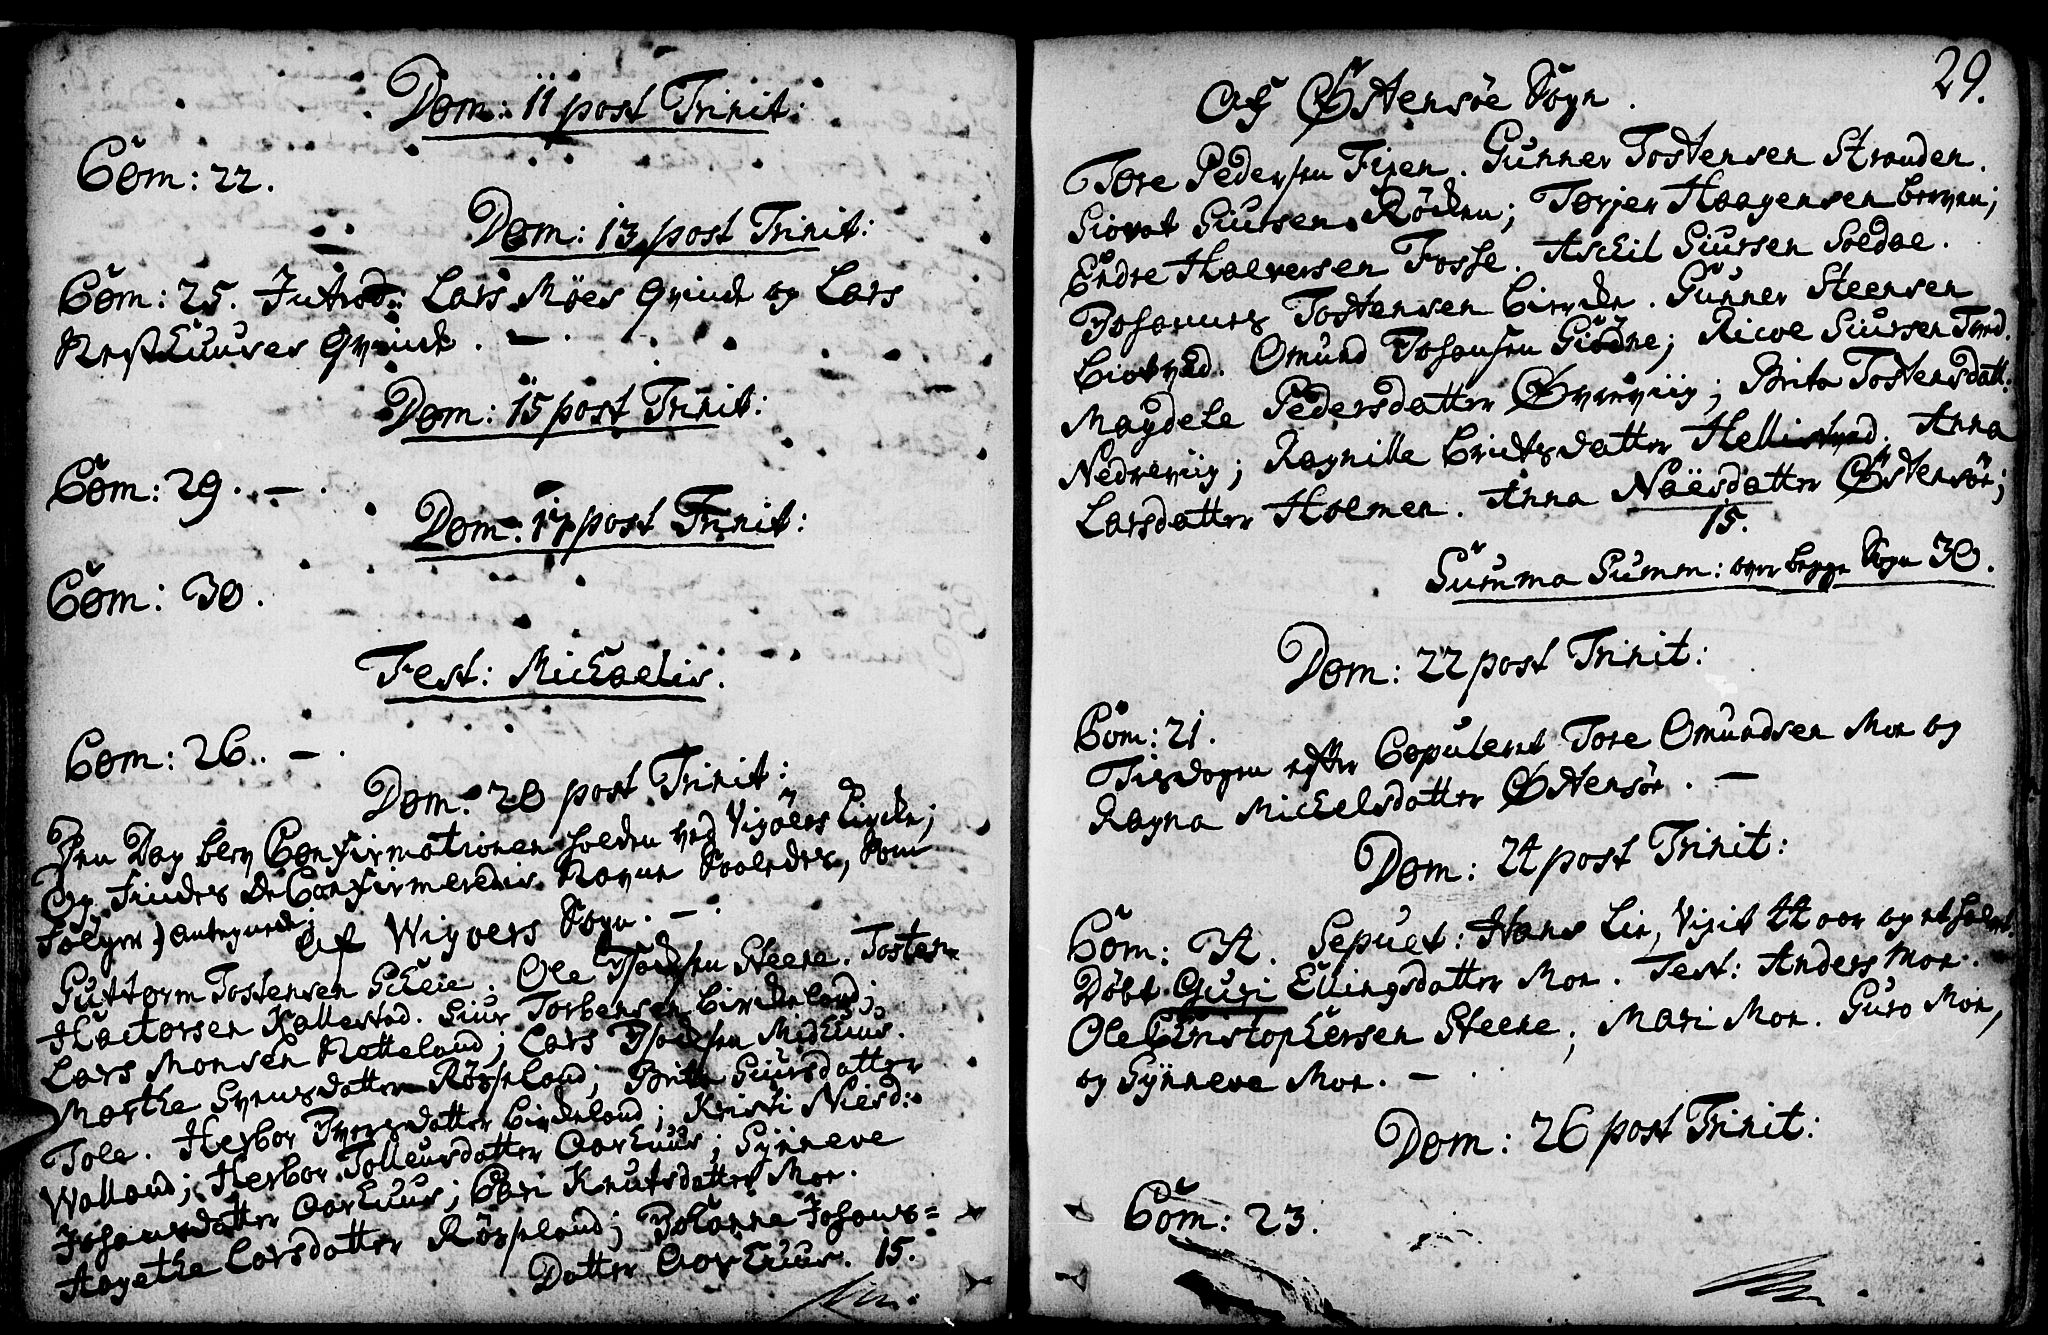 Dom: 11 post Trinit:
Com: 22.
Dom: 13 post Trinit:
Com: 25. Introd: Lars Møes Qvinde og Lars
Resthuuses Qvinde. —
Dom: 15 post Trinit:
Com: 29. —
Dom: 17 post Trinit:
Com: 30.
Fest: Michaelis.
Com: 26. —
Dom: 20 post Trinit:
Den Dag blev Confirmationen holden ved Vigöers Kirke;
Og findes De Confirmeredes Navne Saaledes, Som
følger, antegnede;
af Wigøers Sogn. —
Guttorm Tostensen Scheie. Ole Steene. Tosten
Hactorsen Kallestad. Siur Torbensen Birckeland;
Lars Monsen Netteland; Lars Midthuus.
Marthe Svensdatter Röysseland; Brite Siursdatter
Tole. Herbor Iversdatter Birckeland; Kristi Nielsd:
Walland; Herbor Tolleivsdatter Aarhuus; Synneve
Johansdatter Aarhuus; Kari Knutsdatter Moe.
Aagethe Larsdatter Röysseland; Johanna Johans=
Datter Aarhuus. 15.
29.
Af Østensöe Sogn.
Tore Pedersen Fixen. Gunner Tostensen Stranden.
Siovat Siursen Röcken; Torjer Haagensen Berven;
Endre Halversen Fosse. Aschil Siursen Soldal.
Johannes Tostensen Bircke. Gunner Steensen
Biotved. Omund Johansen Giödne; Ricol Siursen
Magdele Pedersdatter Øvreviig; Brita Tostensdatt:
Nedreviig; Ragnille Bricksdatter Anna
Larsdatter Holmen. Anna Naësdatter Østensöe;
15.
Summa Summ: over begge Sogn 30.
Dom: 22 post Trinit:
Com: 21.
Tisdagen efter Copuleret Tore Omundsen Moe og
Ragna Michelsdatter Østensöe. —
Dom: 24 post Trinit:
Com: 32. Sepult: Hans Lie, Vixit 44 aar og et halvt.
Döbt Guri Ellingsdatter Moe. Test: Anders Moe.
Ole Christophersen Steene; Mari Moe. Guro Moe,
og Synneve Moe. —
Dom: 26 post Trinit:
Com: 23.